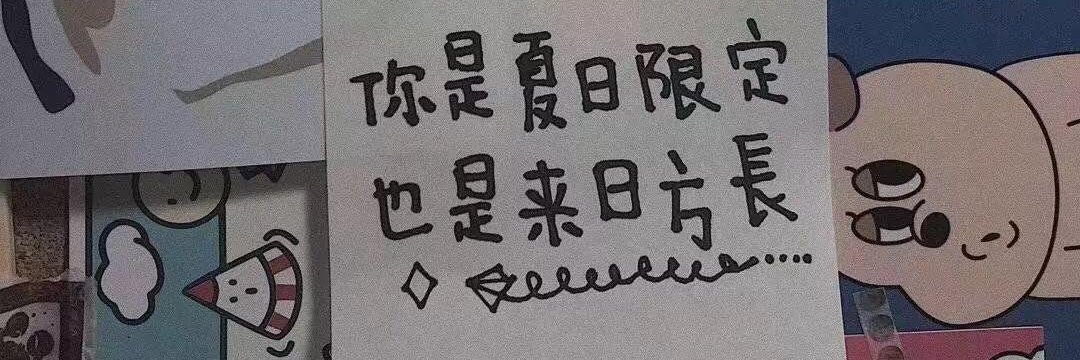 你是夏日限定
也是来日方長